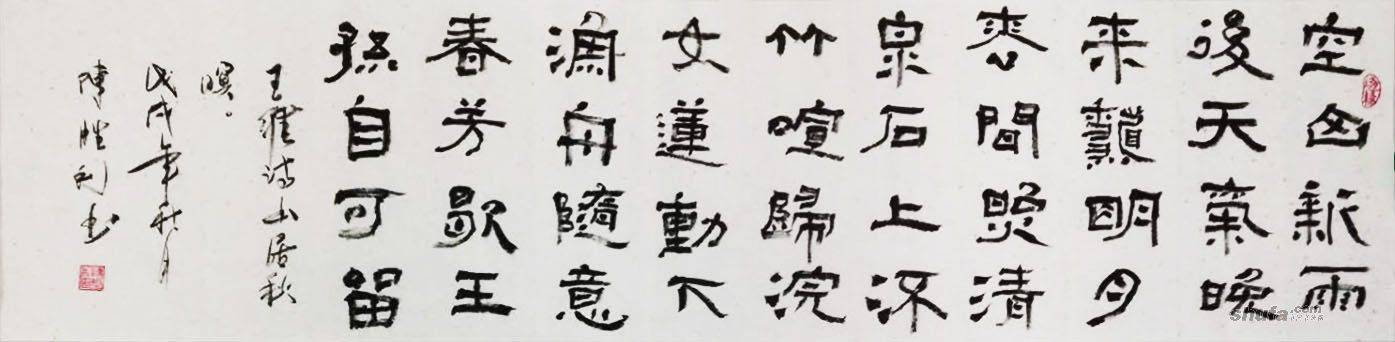 空山新雨
後天氣晚
来龝明月
枩間照清
泉石上流
竹喧歸浣
女蓮動下
漁舟隨意
春芳歇王
孫自可留
王維詩山居秋
暝。
戊戌年秋月
陳勝利书
shufa.com